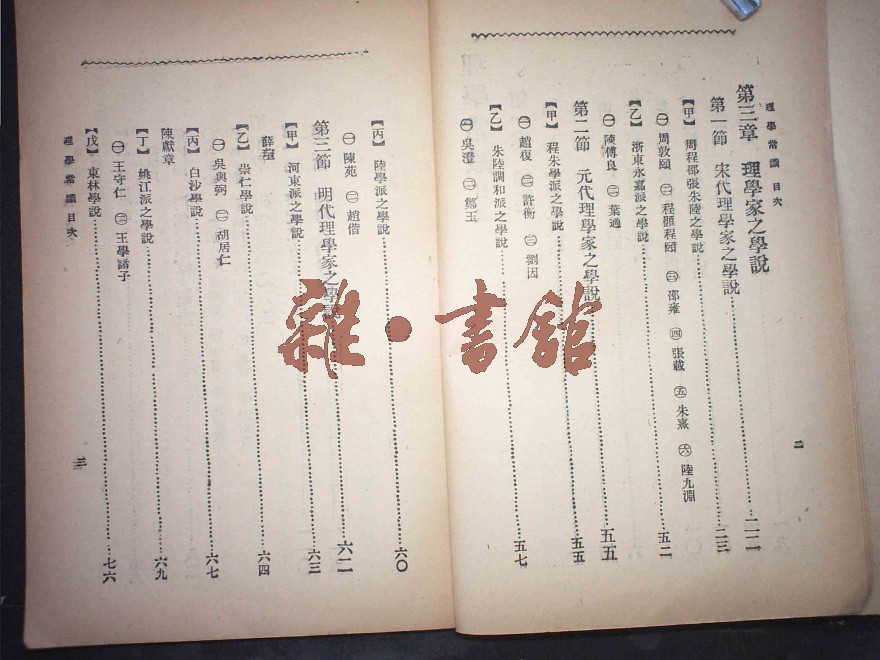 理學常識 目次
二
第三章 理學家之學說……二二
第一節 宋代理學家之學說……二三
【甲】周程邵張朱陸之學說
㊀周敦頤 ㊁程顥程頤 ㊂邵雍 ㊃張載 ㊄朱熹 ㊅陸九淵
【乙】浙東永嘉派之學說……五二
㊀陳傅良 ㊁葉適
第二節 元代理學家之學說……五五
【甲】程朱學派之學說……五五
㊀趙復 ㊁許衡 ㊂劉因
【乙】朱陸調和派之學說……五七
㊀吳澄 ㊁鄭玉
【丙】陸學派之學說……六〇
㊀陳苑 ㊁趙偕
第三節 明代理學家之學說……六二
【甲】河東派之學說……六三
薛瑄
【乙】崇仁學說……六四
㊀吳與弼 ㊁胡居仁
【丙】白沙派之學說……六七
陳獻章
【丁】姚江派之學說……六九
㊀王守仁 ㊁王學諸子
【戊】東林學說……七六
理學常識 目次
三
雜·書館